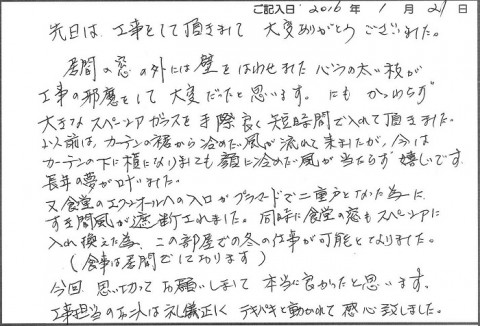 ご記入日 2016 年 1 月 21 日
先日は、工事をして頂きまして 大変ありがとうございました。
居間の窓の外には壁をはわせたバラの太い枝が
工事の邪魔をして大変だったと思います。にもかかわらず
大きなスペーシアガラスを手際良く短時間で入れて頂きました。
以前は、カーテンの裾から冷めたい風が流れて来ましたが、今は
カーテンの下に横になりましても顔に冷めたい風が当たらず嬉しいです。
長年の夢がかないました。
又食堂のエントホールへの入口がプラマードで二重戸となった為に
すき間風が遮断されました。同時に食堂の窓もスペーシアに
入れ換えた為、この部屋での冬の仕事が可能となりました。
(食事は居間でしております)
今回思い切ってお願いしまして本当に良かったと思います。
工事担当のお二人は礼儀正しくテキパキと動かれて感心致しました。